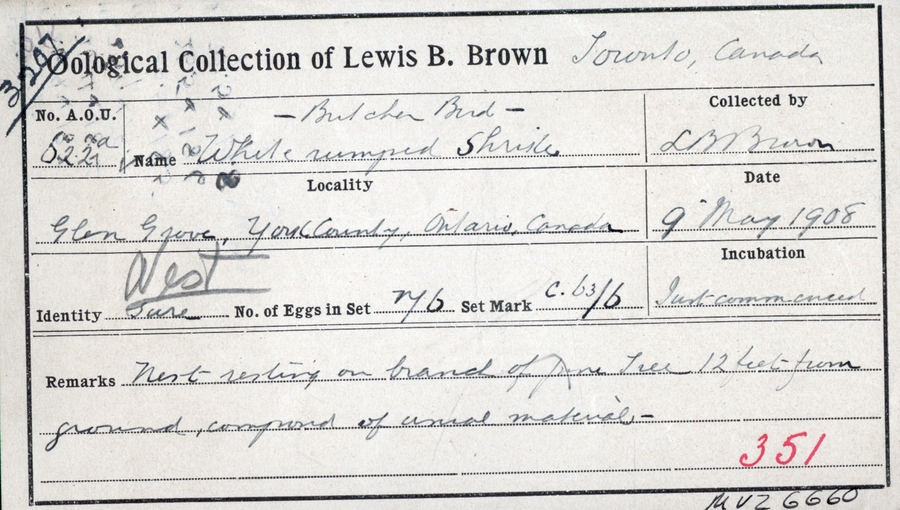 3297.
Oological Collection of Lewis B. Brown Toronto, Canada
No. A.O.U. – Butcher Bird – Collected by
622a Name White rumped Shrike LB Brown
Locality Date
Glen Grove, York County, Ontario, Canada 9" May 1908
West Incubation
Identity Sure No. of Eggs in Set n/6 Set Mark c. 63/6 Just commenced
Remarks Nest resting on branch of Pine Tree 12 feet from
ground, composed of usual material –
351
MVZ 6660